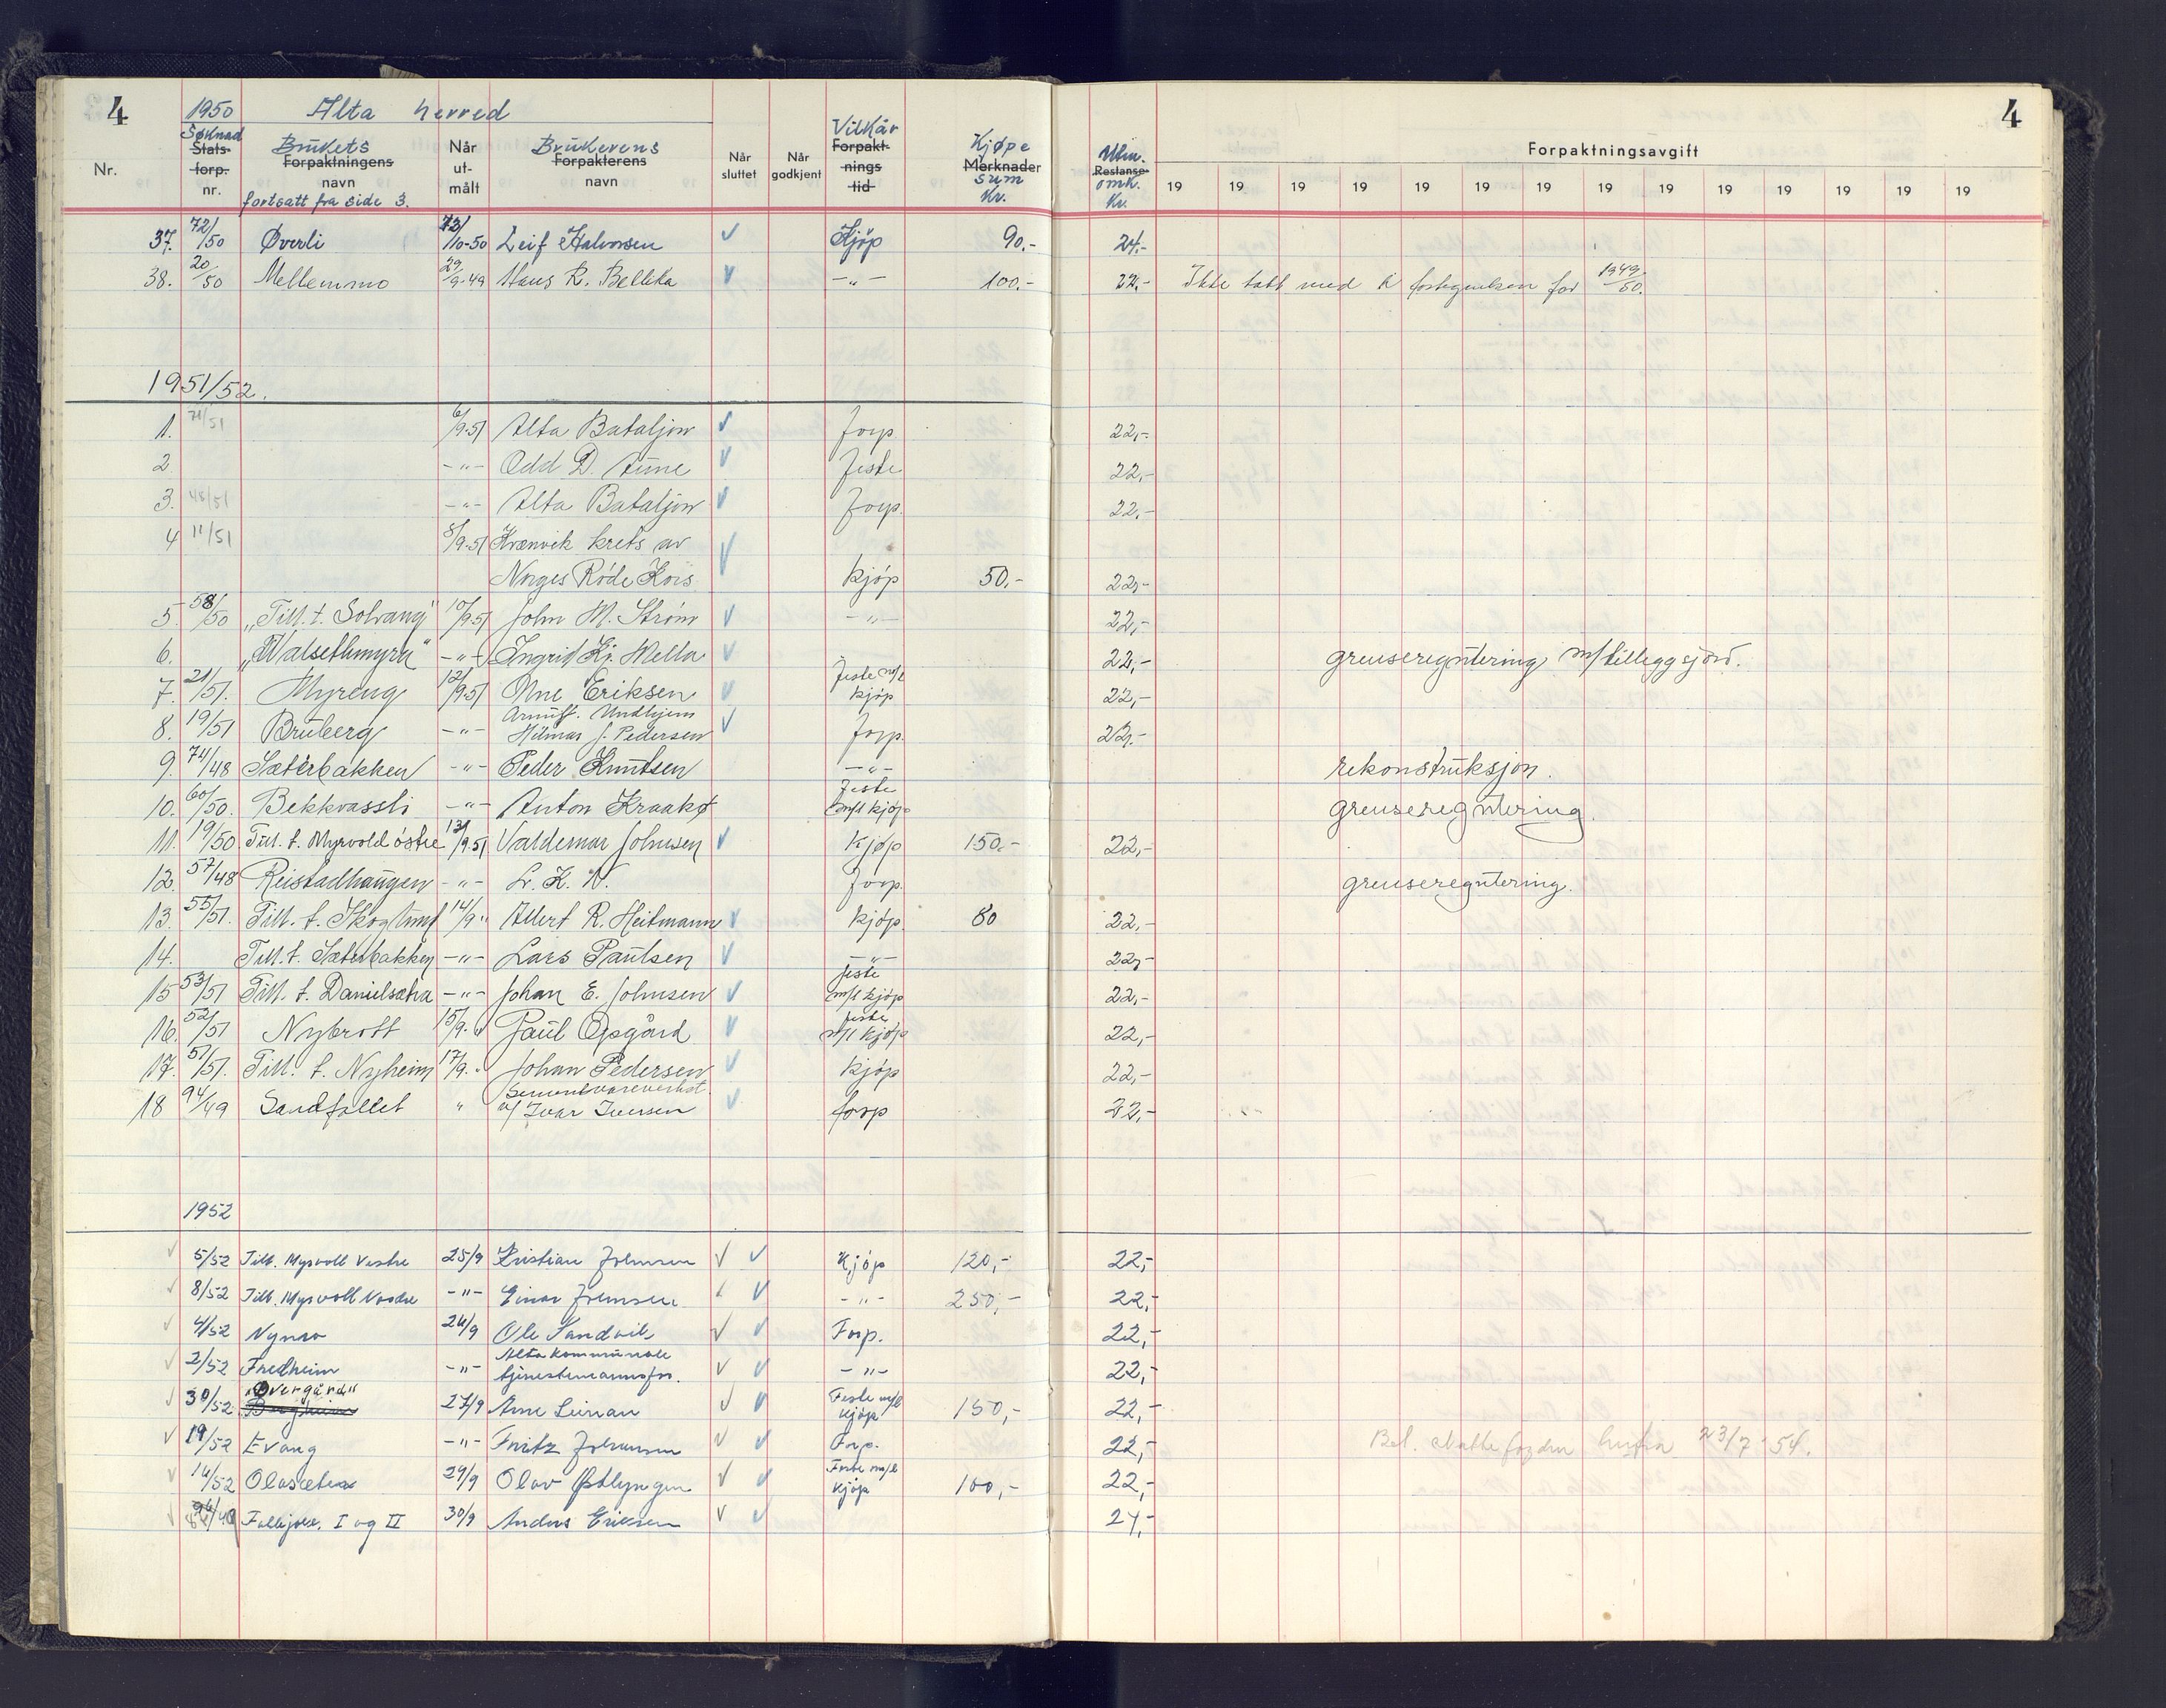 4 1950 Alta herred 4
Søknad Stats-forp. nr. Brukets Forpaktningens navn Når ut-målt Brukerens Forpakterens navn Når sluttet Når godkjent Vilkår Forpakt-nings tid Kjøpe Merknader sum Kr. Utm. Restanse omk. Kr. Forpaktningsavgift
Nr. fortsatt fra side 3. 19 19 19 19 19 19 19 19 19 19 19 19 19 19
37. 72/50 Øverli 12/10-50 Leif Halvorsen Kjøp 90.- 24.-
38. 20/50 Mellemmo 29/9-49 Hans R. Bellika -"- 100.- 22.- Ikke tatt med i for 1949/50.
1951/52.
1. 71/51 6/9-51 Alta Bataljon Forp. 22,-
2. -"- Odd D. Aune Feste 22,-
3. 48/51 -"- Alta Bataljon Forp. 22,-
4 11/51 8/9-51 Kvænvik krets av
Norges Røde Kors kjøp 50.- 22,-
5. 58/50 "Till. t. Solvang" 10/9-51 John M. Strøm -"- 22,-
6. "Walsethmyra" -"- Ingrid Kj. Mella 22,- grenseregulering m/tilleggsjord.
7. 21/51. Myreng 12/9-51 One Eriksen Feste m/l kjøp 22,-
8. 19/51 Bruberg -"- Arnulf. Undhjem Hilmar J. Pedersen Forp. 22,-
9. 74/48 Sæterbakken -"- Peder Knutsen -"- rekonstruksjon.
10. 60/50. Bekkvassli -"- Anton Kraakø Feste m/l kjøp grenseregulering.
11. 19/50 Till. t. Myrvold østre 13/9-51 Valdemar Johnsen kjøp 150.- 22,-
12. 57/48 Reistadhaugen -"- L. K. N. Forp. grenseregulering.
13. 55/51. Till. t. Skoglund 14/9 " Albert R. Heitmann kjøp 80 22,-
14. Till. t. Sæterbakken -"- Lars Paulsen -"- 22,-
15 53/51 Till. t. Danielsætra -"- Johan E. Johnsen feste m/l kjøp 22,-
16. 52/51 Nybrott 15/9. " Paul Opgård feste m/l kjøp 22,-
17. 51/51. Till. t. Nyheim 17/9. " Johan Pedersen kjøp 22,-
18 94/49 Sandfallet " Sementvareverkst. v/ Ivar Iversen forp 22,-
1952
5/52 Till. Myrvoll Vestre 25/9 Kristian Johnsen Kjøp 120,- 22,-
8/52 Till. Myrvoll Nordre -"- Einar Johnsen -"- 250,- 22,-
4/52 Nymo 26/9 Ole Sandvik Forp. 22,-
2/52 Fredheim -"- Alta kommunale tjenestemannsfor. -"- 22,-
30/52 "Øvergård" Bergheim 27/9 Arne Leinan Feste m/l kjøp 150,- 22,-
19/52 Evang -"- Fritz Johansen Forp. 22,- Bet. 23/7-54.
14/52 Olasætra 29/9 Olav Østlyngen Feste m/l kjøp 100,- 22,-
I og II 30/9 Anders Eriksen 24,-